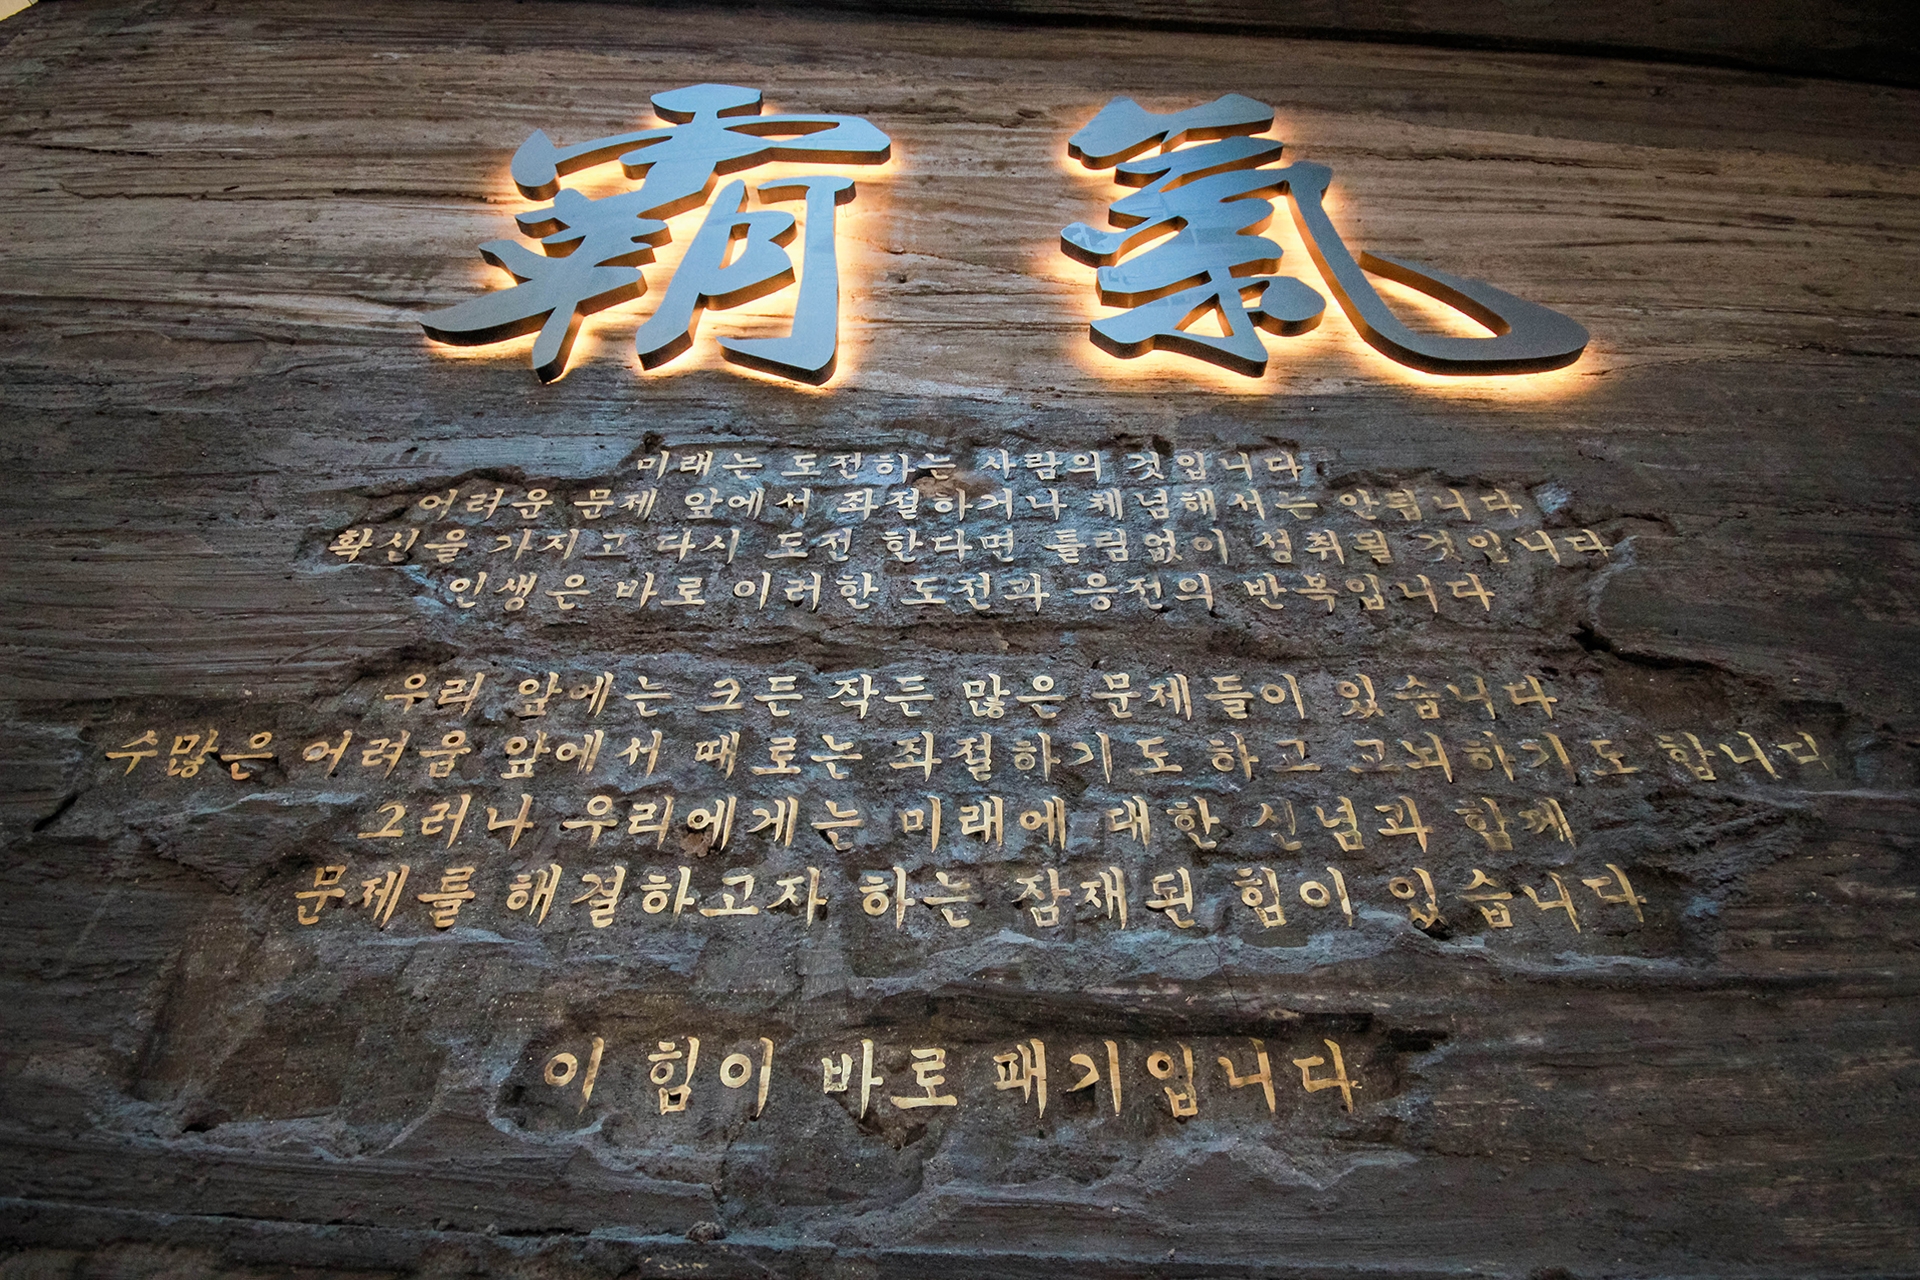 霸氣
미래는 도전하는 사람의 것입니다
어려운 문제 앞에서 좌절하거나 체념해서는 안됩니다
확신을 가지고 다시 도전 한다면 틀림없이 성취될 것입니다
인생은 바로 이러한 도전과 응전의 반복입니다
우리 앞에는 크든 작든 많은 문제들이 있습니다
수많은 어려움 앞에서 때로는 좌절하기도 하고 고뇌하기도 합니다
그러나 우리에게는 미래에 대한 신념과 함께
문제를 해결하고자 하는 잠재된 힘이 있습니다
이 힘이 바로 패기입니다